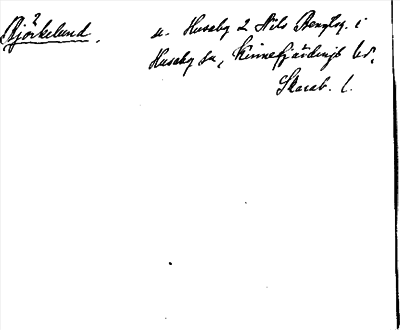 Björkelund. u. Huseby 2 Nils Bengtsg. i
Huseby sn, Kinnefjärdings hd,
Skarab. l.